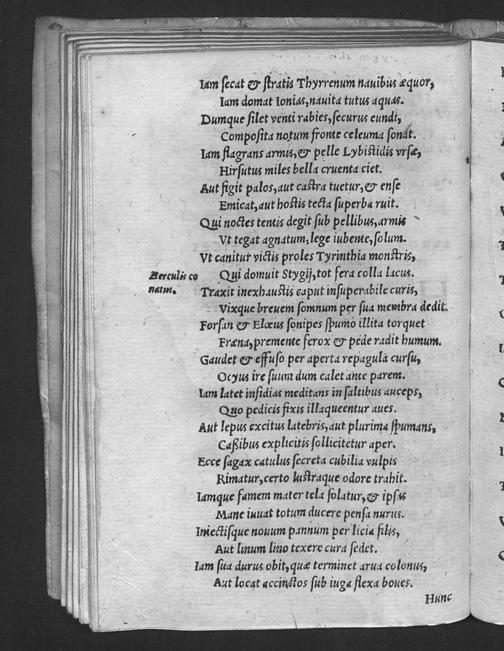 Iam secat & stratis Thyrrenum nauibus æquor,
Iam domat Ionias, nauita tutus aquas.
Dumque silet venti rabies, securus eundi,
Composita notum fronte celeuma sonat.
Iam flagrans armis, & pelle Lybistidis vrsæ,
Hirsutus miles bella cruenta ciet.
Aut figit palos, aut castra tuetur, & ense
Emicat, aut hostis tecta superba ruit.
Qui noctes tentis degit sub pellibus, armis
Vt tegat agnatum, lege iubente, solum.
Vt canitur victis proles Tyrinthia monstris,
Herculis co
natus.
Qui domuit Stygij, tot fera colla lacus.
Traxit inexhaustis caput insuperabile curis,
Vixque breuem somnum per sua membra dedit.
Forsan & Elæus sonipes spumo illita torquet
Fræna, premente ferox & pede radit humum.
Gaudet & effuso per aperta repagula cursu,
Ocyus ire suum dum calet ante parem.
Iam latet insidias meditans in saltibus auceps,
Quo pedicis fixis illaqueentur aues.
Aut lepus excitus latebris, aut plurima spumans,
Caßibus explicitis sollicitetur aper.
Ecce sagax catulus secreta cubilia vulpis
Rimatur, certo lustraque odore trahit.
Iamque famem mater tela solatur, & ipsas
Mane iuuat totum ducere pensa nurus.
Iniectisque nouum pannum per licia filis,
Aut linum lino texere cura sedet.
Iam sua durus obit, quæ terminet arua colonus,
Aut locat accinctos sub iuga flexa boues.
Hunc